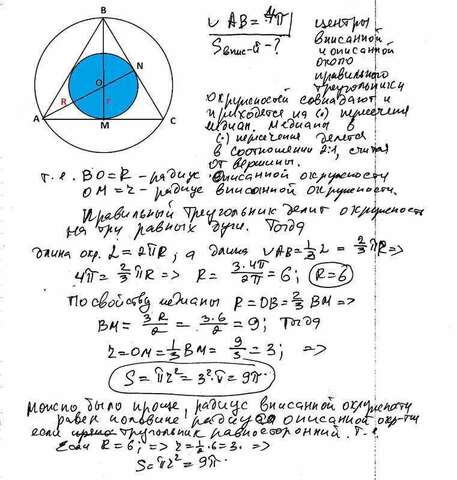 B
N
O
R
r
A
M
C
∪ AB = 4π
Sвпис-й - ?
центры
вписанной
и описанной
около
правильного
треугольника
окружностей совпадают и
приходятся на (•) пересечения
медиан. Медиана в
(•) пересечения делится
в соотношении 2:1, считая
от вершины.
т.е. BO = R - радиус описанной окружности
OM = r - радиус вписанной окружности.
Правильный треугольник делит окружность
на три равных дуги. Тогда
длина окр. L = 2πR; а длина ∪AB = 1/3 L = 2/3 πR =>
4π = 2/3 πR => R = 3·4π/2π = 6; R = 6
По свойству медианы R = OB = 2/3 BM =>
BM = 3R/2 = 3·6/2 = 9; Тогда
r = OM = 1/3 BM = 9/3 = 3; =>
S = πr² = 3²·π = 9π.
Можно было проще, радиус вписанной окружности
равен половине радиуса описанной окр-ти
если треугольник равносторонний. т.е.
Если R = 6; => r = 1/2·6 = 3. =>
S = πr² = 9π.